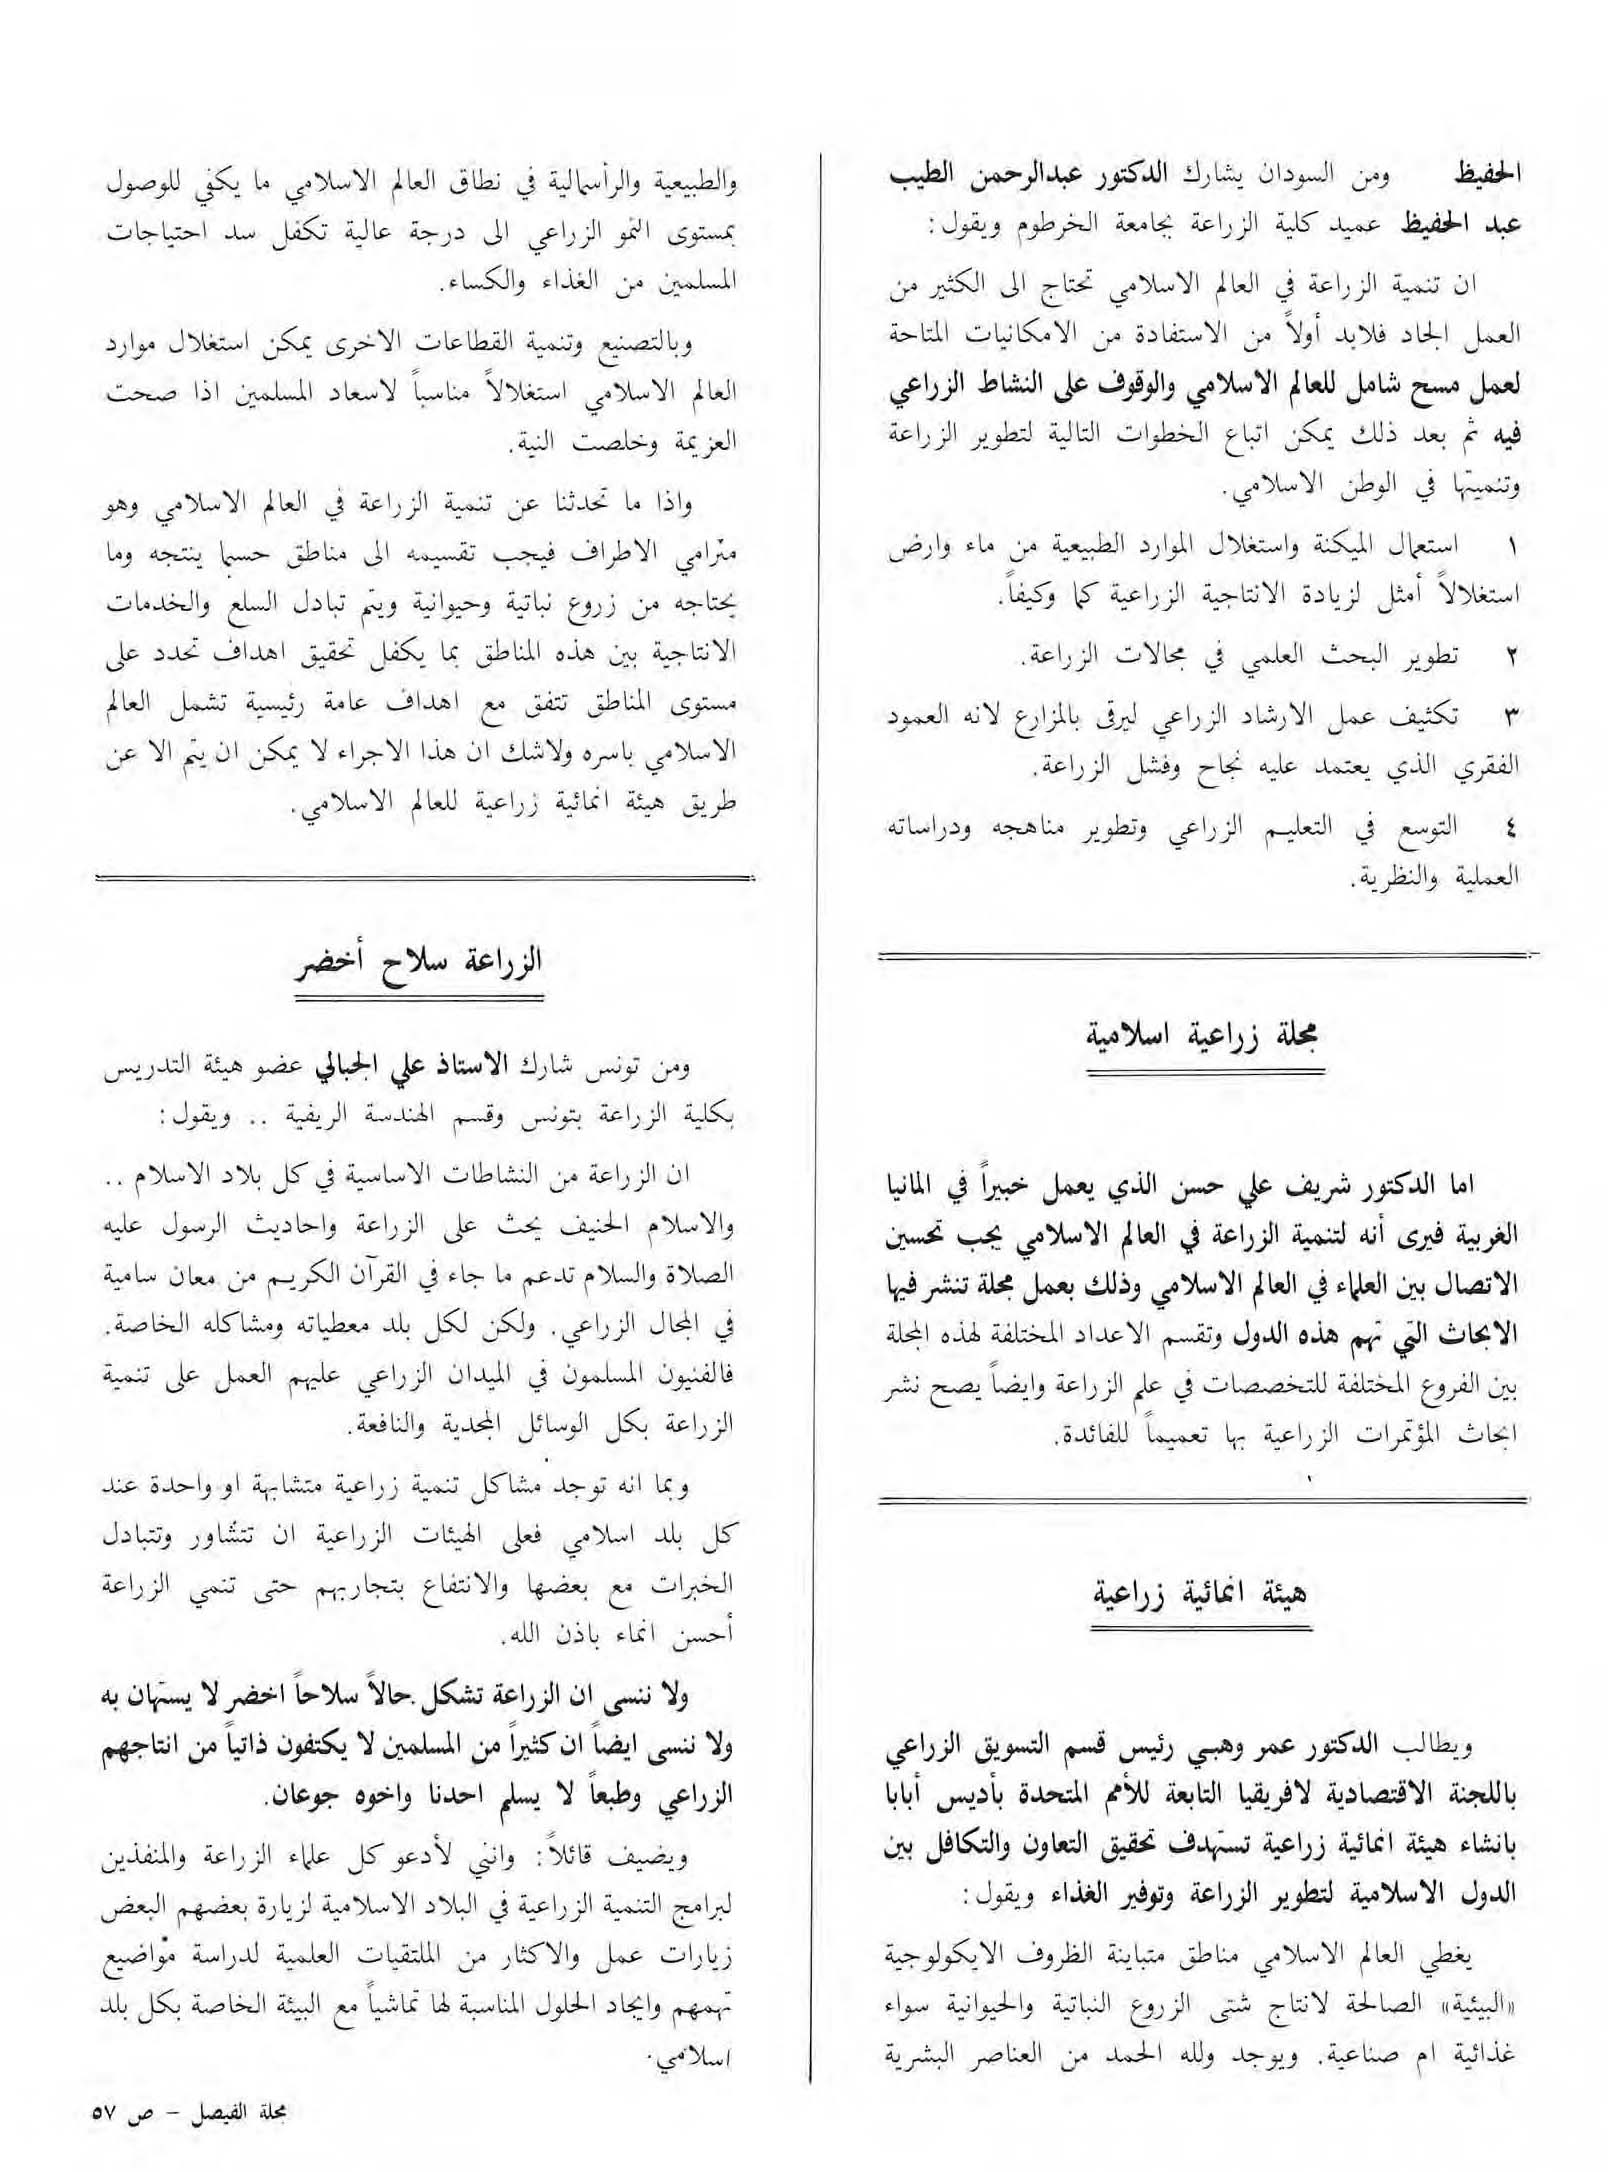 الحفيظ ومن السودان يشارك الدكتور عبدالرحمن الطيب
عبد الحفيظ عميد كلية الزراعة بجامعة الخرطوم ويقول :
ان تنمية الزراعة في العالم الاسلامي تحتاج الى الكثير من
العمل الجاد فلابد أولاً من الاستفادة من الامكانيات المتاحة
لعمل مسح شامل للعالم الاسلامي والوقوف على النشاط الزراعي
فيه ثم بعد ذلك يمكن اتباع الخطوات التالية لتطوير الزراعة
وتنميتها في الوطن الاسلامي .
١ استعمال الميكنة واستغلال الموارد الطبيعية من ماء وارض
استغلالاً أمثل لزيادة الانتاجية الزراعية كما وكيفاً .
٢ تطوير البحث العلمي في مجالات الزراعة .
٣ تكثيف عمل الارشاد الزراعي ليرقى بالمزارع لانه العمود
الفقري الذي يعتمد عليه نجاح وفشل الزراعة .
٤ التوسع في التعليم الزراعي وتطوير مناهجه ودراساته
العملية والنظرية .
مجلة زراعية اسلامية
اما الدكتور شريف علي حسن الذي يعمل خبيراً في المانيا
الغربية فيرى أنه لتنمية الزراعة في العالم الاسلامي يجب تحسين
الاتصال بين العلماء في العالم الاسلامي وذلك بعمل مجلة تنشر فيها
الابحاث التي تهم هذه الدول وتقسم الاعداد المختلفة لهذه المجلة
بين الفروع المختلفة للتخصصات في علم الزراعة وايضاً يصح نشر
ابحاث المؤتمرات الزراعية بها تعميماً للفائدة .
هيئة انمائية زراعية
ويطالب الدكتور عمر وهبي رئيس قسم التسويق الزراعي
باللجنة الاقتصادية لافريقيا التابعة للأمم المتحدة بأديس أبابا
بانشاء هيئة انمائية زراعية تستهدف تحقيق التعاون والتكافل بين
الدول الاسلامية لتطوير الزراعة وتوفير الغذاء ويقول :
يغطي العالم الاسلامي مناطق متباينة الظروف الايكولوجية
«البيئية» الصالحة لانتاج شتى الزروع النباتية والحيوانية سواء
غذائية ام صناعية . ويوجد ولله الحمد من العناصر البشرية
والطبيعية والرأسمالية في نطاق العالم الاسلامي ما يكفي للوصول
بمستوى النمو الزراعي الى درجة عالية تكفل سد احتياجات
المسلمين من الغذاء والكساء .
وبالتصنيع وتنمية القطاعات الاخرى يمكن استغلال موارد
العالم الاسلامي استغلالاً مناسباً لاسعاد المسلمين اذا صحت
العزيمة وخلصت النية .
واذا ما تحدثنا عن تنمية الزراعة في العالم الاسلامي وهو
مترامي الاطراف فيجب تقسيمه الى مناطق حسبما ينتجه وما
يحتاجه من زروع نباتية وحيوانية ويتم تبادل السلع والخدمات
الانتاجية بين هذه المناطق بما يكفل تحقيق اهداف تحدد على
مستوى المناطق تتفق مع اهداف عامة رئيسية تشمل العالم
الاسلامي باسره ولاشك ان هذا الاجراء لا يمكن ان يتم الا عن
طريق هيئة انمائية زراعية للعالم الاسلامي .
الزراعة سلاح أخضر
ومن تونس شارك الاستاذ علي الجبالي عضو هيئة التدريس
بكلية الزراعة بتونس وقسم الهندسة الريفية .. ويقول :
ان الزراعة من النشاطات الاساسية في كل بلاد الاسلام ..
والاسلام الحنيف يحث على الزراعة واحاديث الرسول عليه
الصلاة والسلام تدعم ما جاء في القرآن الكريم من معان سامية
في المجال الزراعي . ولكن لكل بلد معطياته ومشاكله الخاصة .
فالفنيون المسلمون في الميدان الزراعي عليهم العمل على تنمية
الزراعة بكل الوسائل المجدية والنافعة .
وبما انه توجد مشاكل تنمية زراعية متشابهة او واحدة عند
كل بلد اسلامي فعلى الهيئات الزراعية ان تتشاور وتتبادل
الخبرات مع بعضها والانتفاع بتجاربهم حتى تنمي الزراعة
أحسن انماء باذن الله .
ولا ننسى ان الزراعة تشكل حالاً سلاحاً اخضر لا يستهان به
ولا ننسى ايضاً ان كثيراً من المسلمين لا يكتفون ذاتياً من انتاجهم
الزراعي وطبعاً لا يسلم احدنا واخوه جوعان .
ويضيف قائلاً : وانني لأدعو كل علماء الزراعة والمنفذين
لبرامج التنمية الزراعية في البلاد الاسلامية لزيارة بعضهم البعض
زيارات عمل والاكثار من الملتقيات العلمية لدراسة مواضيع
تهمهم وايجاد الحلول المناسبة لها تماشياً مع البيئة الخاصة بكل بلد
اسلامي .
مجلة الفيصل – ص ٥٧